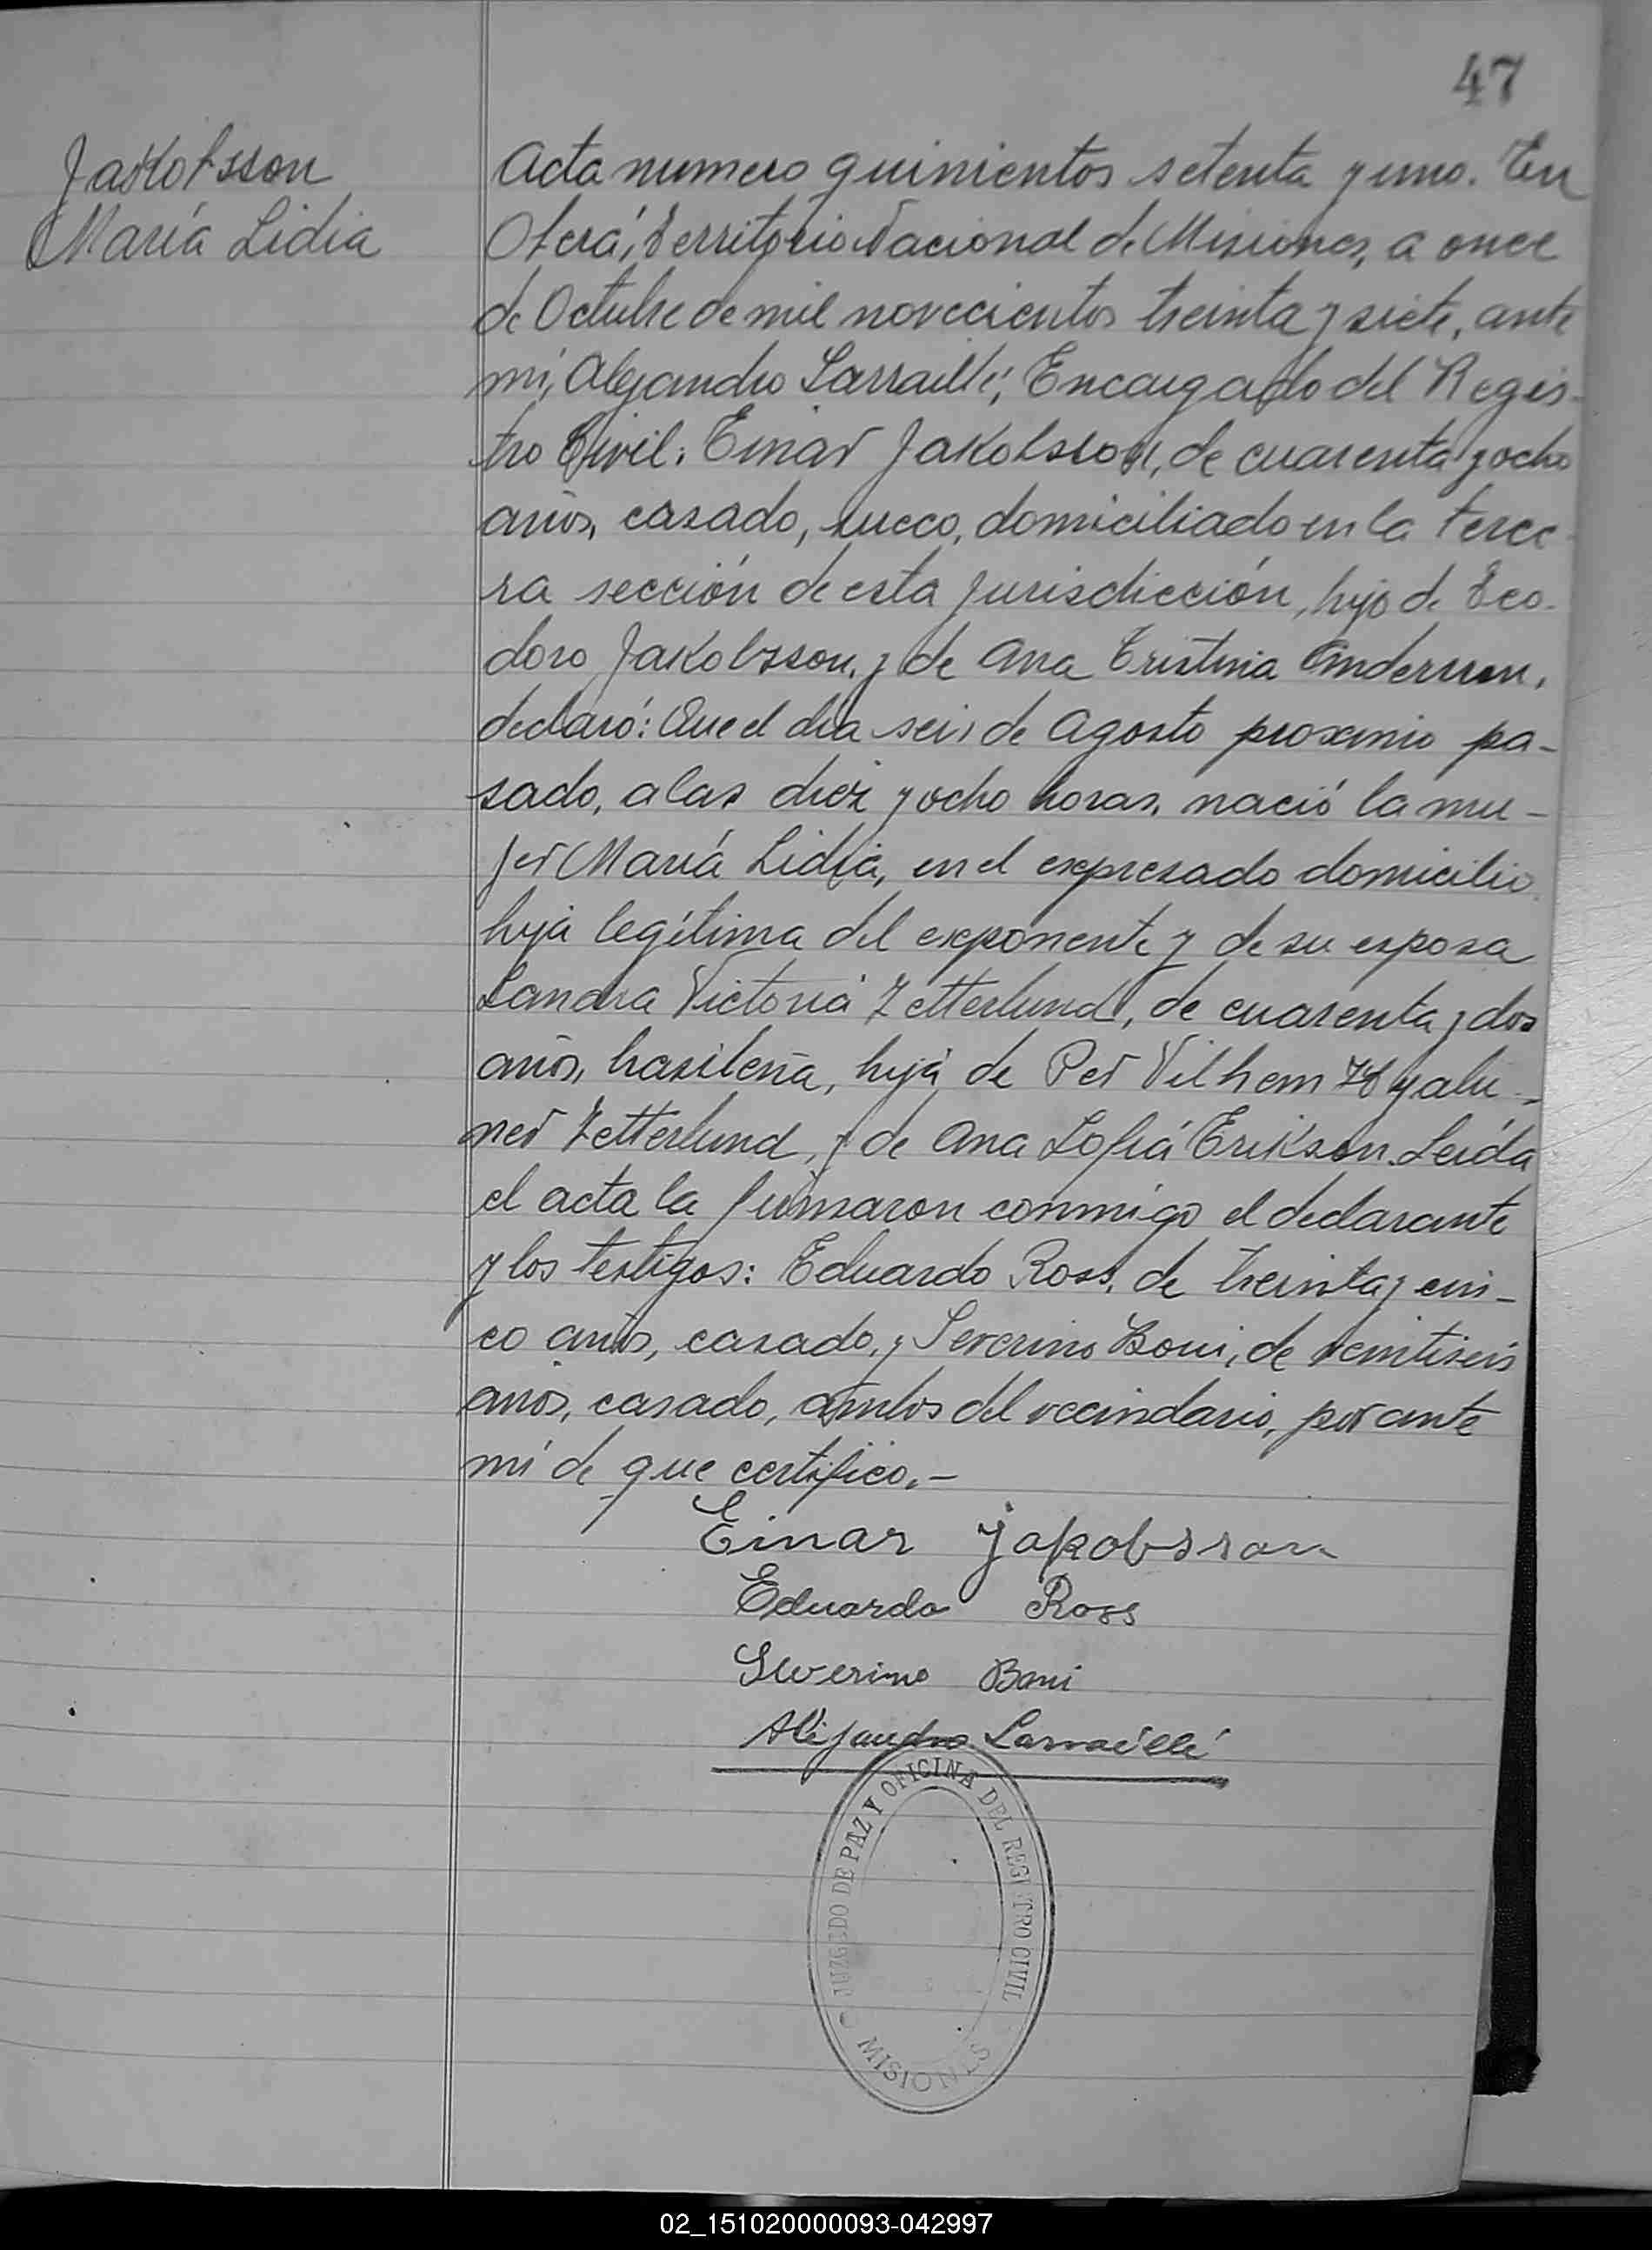 47
Jakobsson
María Lidia
Acta numero quinientos setenta y uno. En
Oberá, Territorio Nacional de Misiones, a once
de Octubre de mil novecientos treinta y siete, ante
mí, Alejandro Larraillé, Encargado del Regis-
tro Civil: Einar Jakobsson, de cuarenta y ocho
años, casado, sueco, domiciliado en la terce-
ra sección de esta jurisdicción, hijo de Teo-
doro Jakobsson, y de Ana Cristina Anderson,
declaró: Que el día seis de Agosto proximo pa-
sado, a las diez y ocho horas, nació la mu-
jer María Lidia, en el expresado domicilio
hija legítima del exponente y de su esposa
Sandra Victoria Zetterlund, de cuarenta y dos
años, brasileña, hija de Per Vilhem
Zetterlund, y de Ana Sofía Erikson. Leída
el acta la firmaron conmigo el declarante
y los testigos: Eduardo Ross, de treinta y cin-
co años, casado, y Severino Boni, de veintiseis
años, casado, ambos del vecindario, por ante
mí de que certifico.-
Einar Jakobsson
Eduardo Ross
Severino Boni
Alejandro Larraillé
JUZGADO DE PAZ Y OFICINA DEL REGISTRO CIVIL
MISIONES
02_151020000093-042997